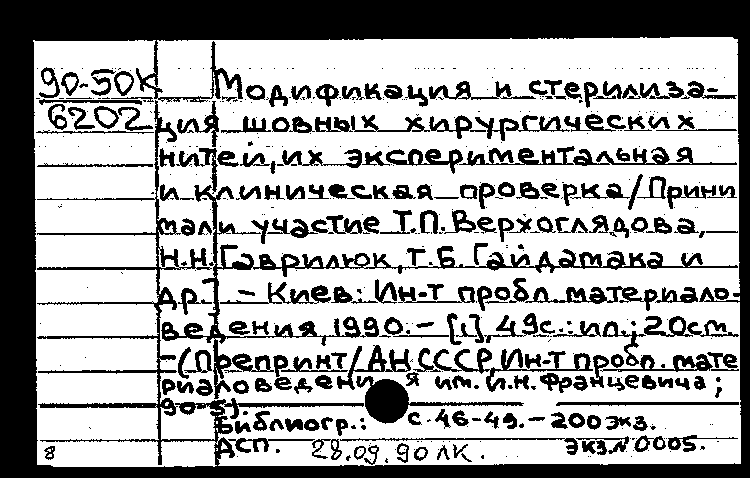 90-50К Модификация и стерилиза-
6202 ция шовных хирургических
нитей, их экспериментальная
и клиническая проверка/Прини
мали участие Т.П. Верхоглядова,
Н.Н. Гаврилюк, Т.Б. Гайдамака и
др.]. - Киев: Ин-т пробл. материало-
ведения, 1990. - [1], 49с.: ил.; 20см.
-(Препринт/АН СССР, Ин-т пробл. мате
риаловедения им. И.Н. Францевича;
90-5).
Библиогр.: с. 46-49. - 200 экз.
ДСП. 28.09.90 ЛК. экз. N 0005.
8